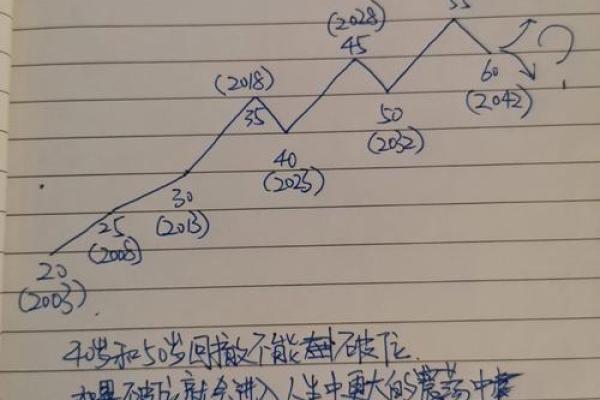 55
(2028)
45
(2018)
35
60
(2042)
50
(2032)
40
(2023)
30
(2013)
25
(2008)
20
(2003)
?
40岁和50岁回撤不能破位.
如果破位就会进入人生中更大的震荡中